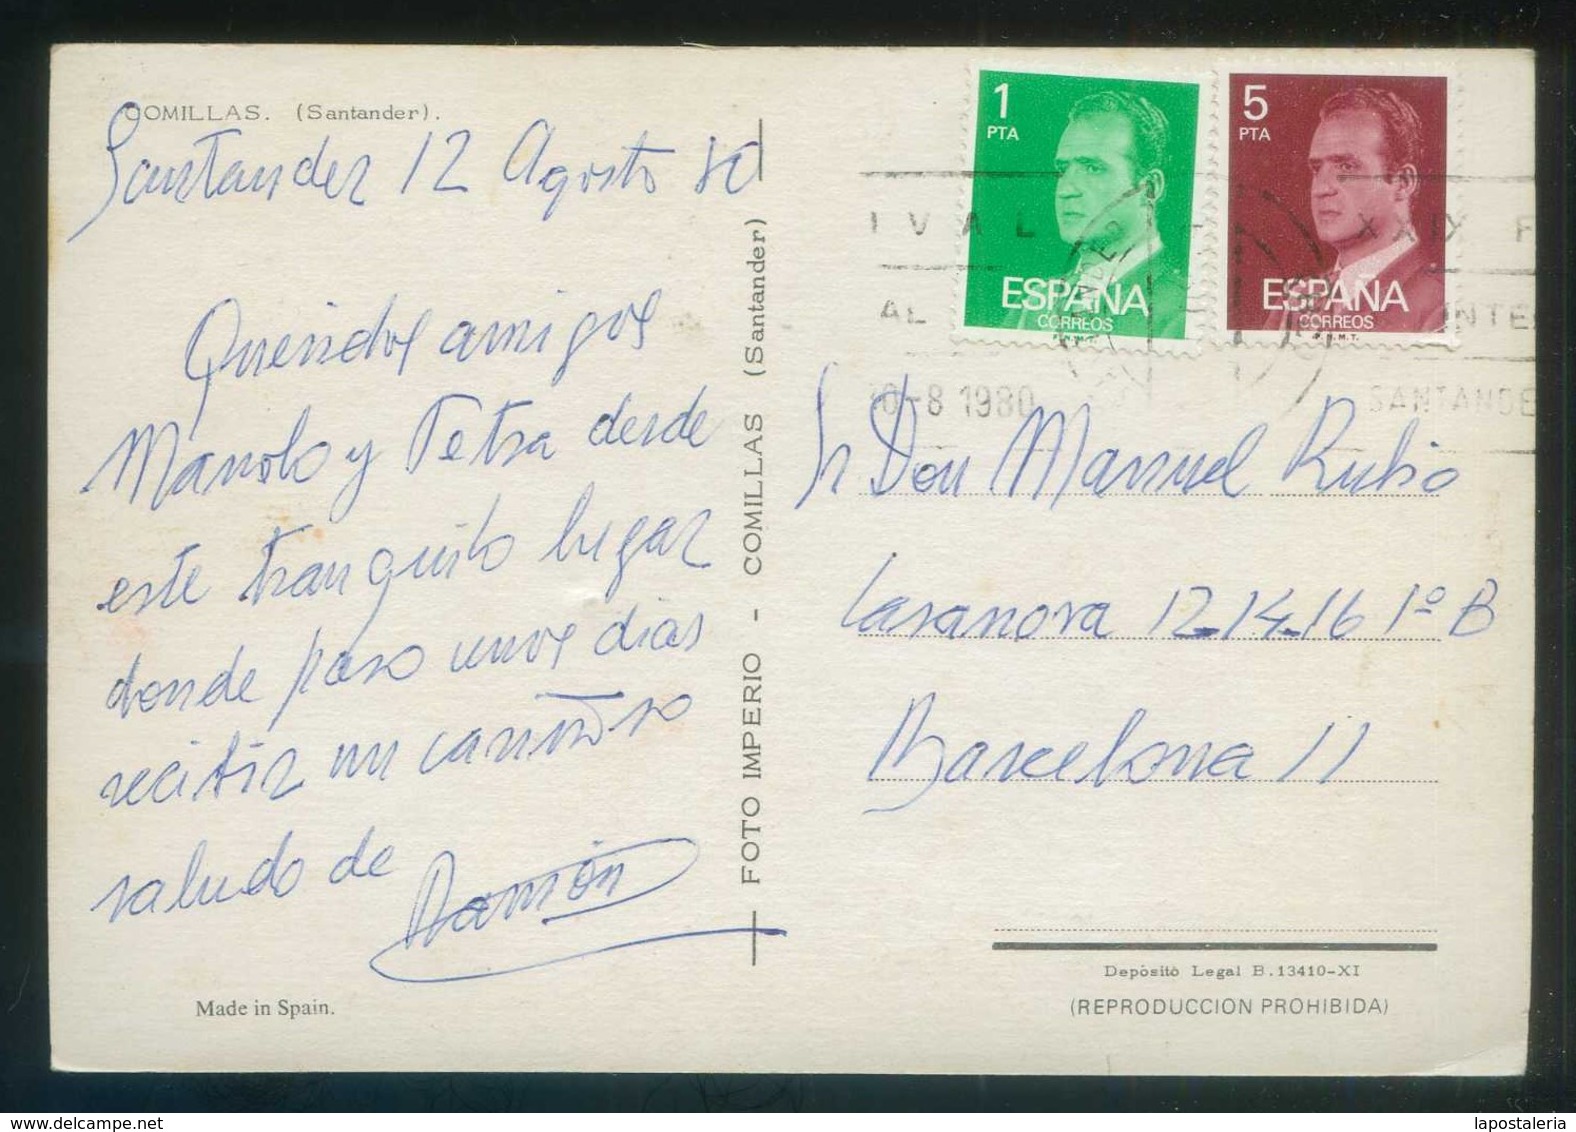 COMILLAS. (Santander).
Santander 12 Agosto 80
Queridos amigos
Manolo y Petra desde
este tranquilo lugar
donde paso unos dias
recibir un cariñoso
saludo de
Ramón
Made in Spain.
FOTO IMPERIO - COMILLAS (Santander)
1
PTA
ESPAÑA
CORREOS
F.N.M.T.
5
PTA
ESPAÑA
CORREOS
F.N.M.T.
IVAL
XXIX F
AL
INTE
0-8 1980
SANTANDE
Sr Don Manuel Rubio
Casanova 12-14-16 1º B
Barcelona 11
Depòsitò Legal B.13410-XI
(REPRODUCCION PROHIBIDA)
lapostaleria